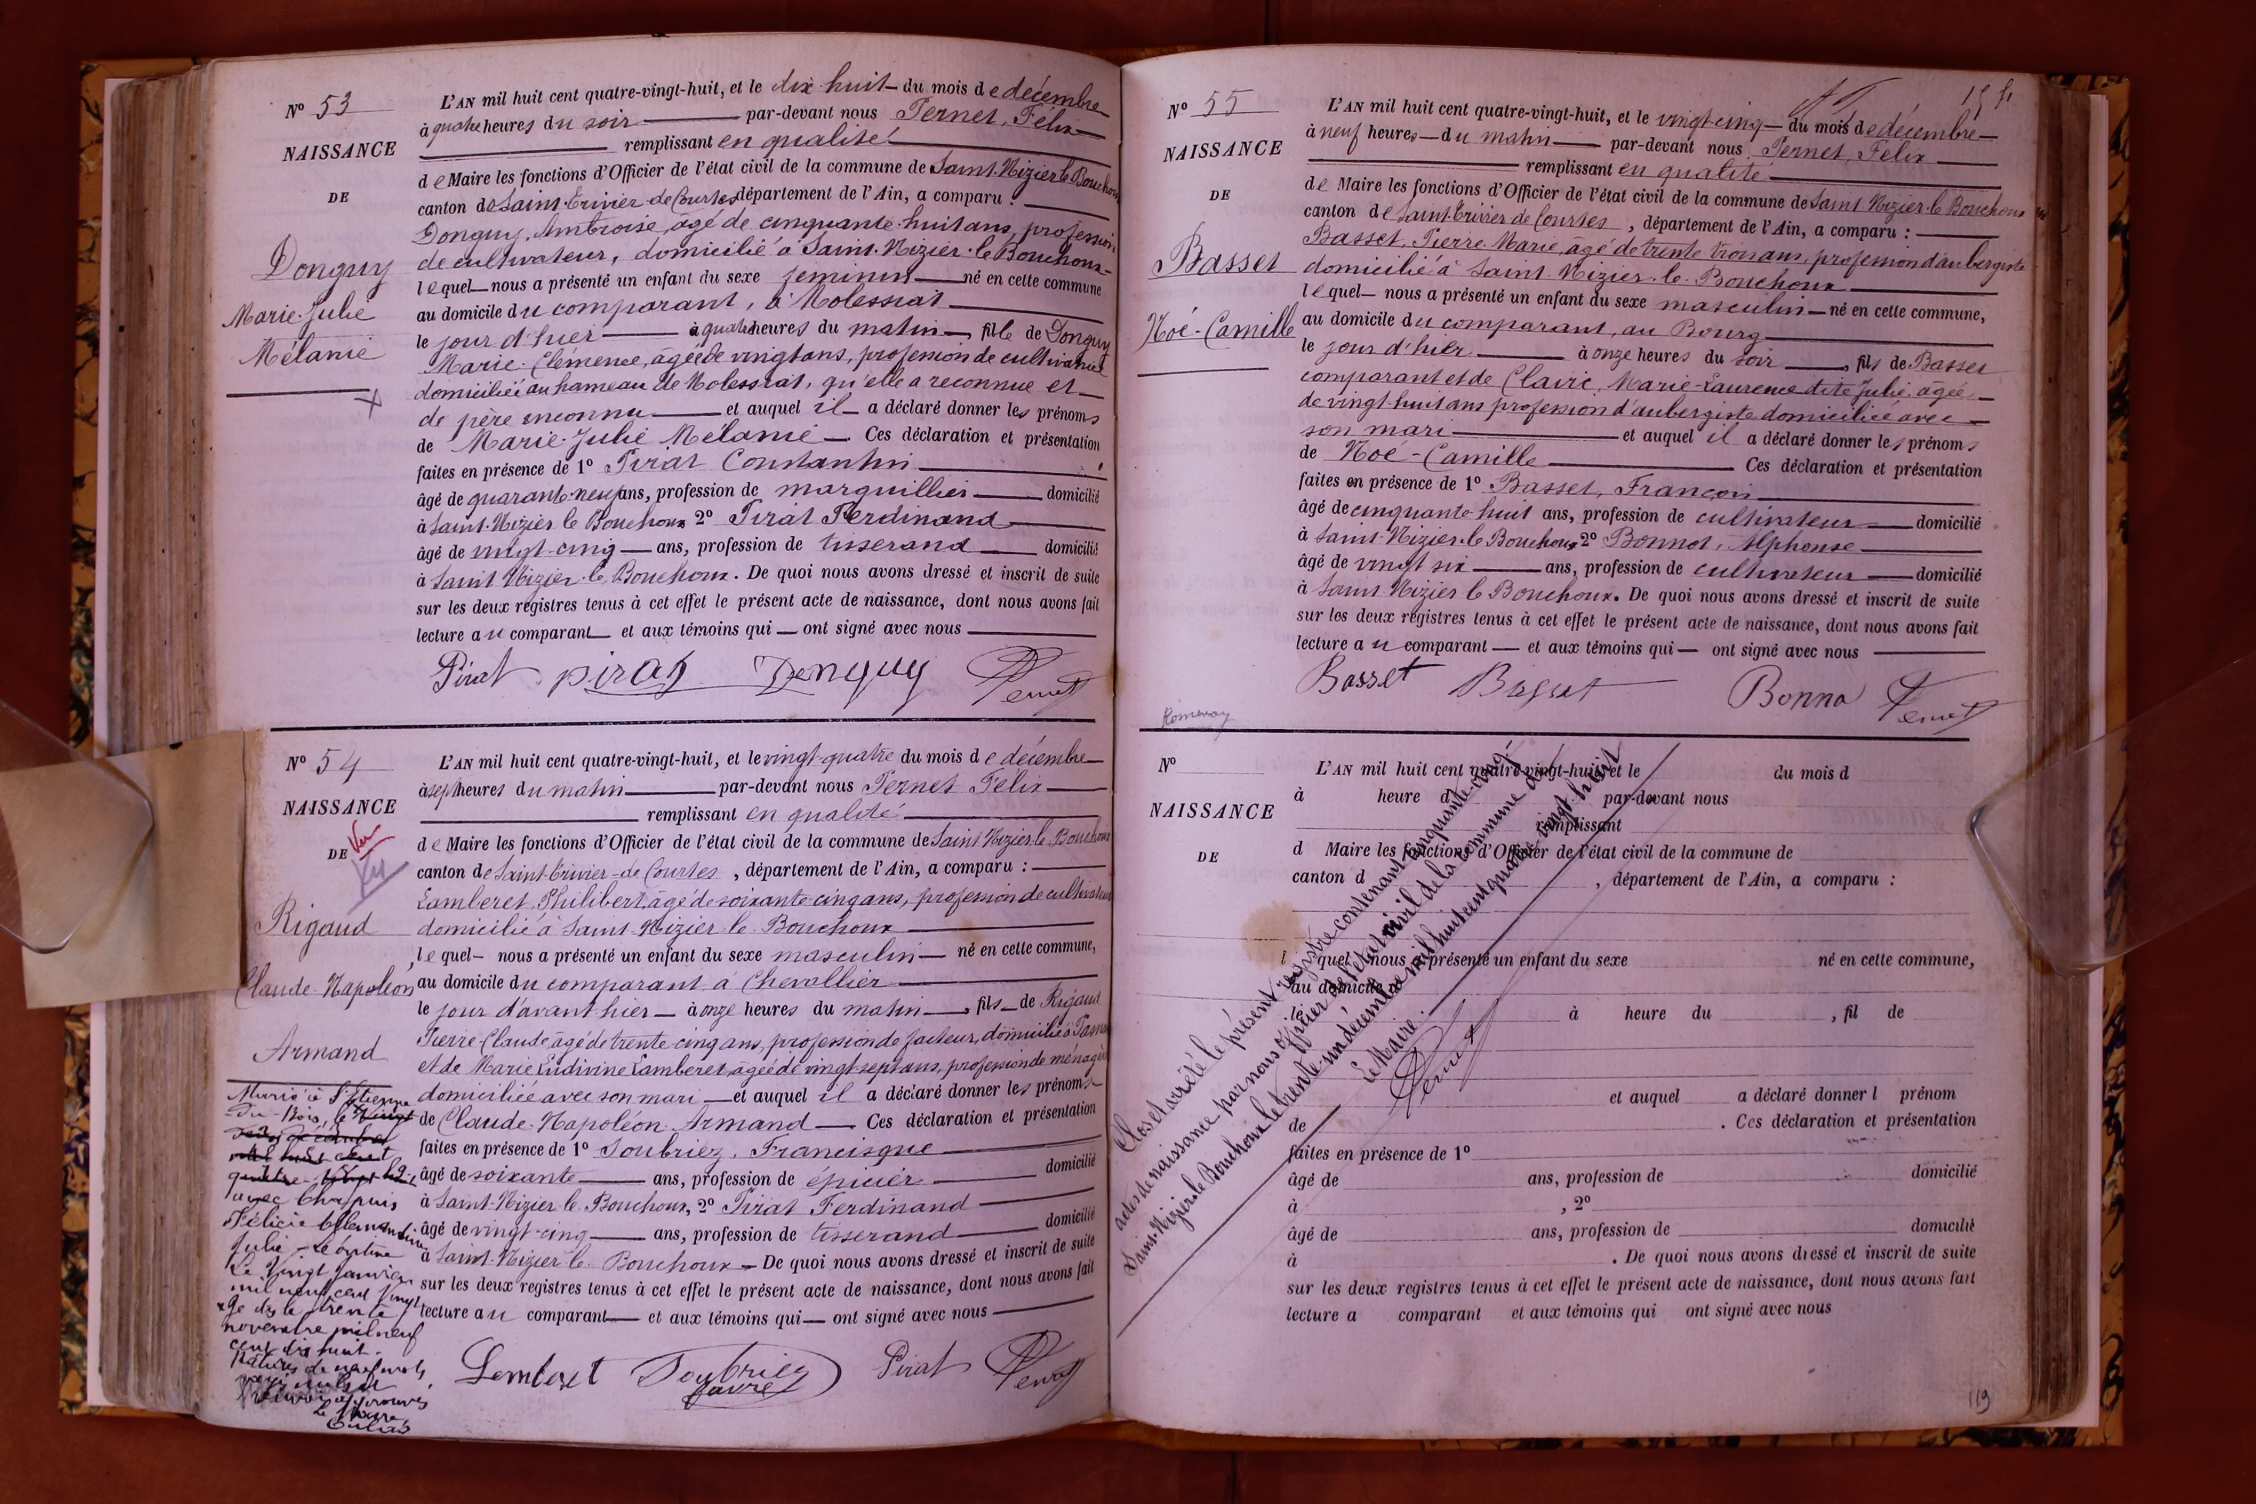 N° 53
NAISSANCE
DE
Donguy
Marie-Julie
Mélanie
L'AN mil huit cent quatre-vingt-huit, et le dix huit du mois de décembre
à quatre heures du soir par-devant nous Pernet, Félix
remplissant en qualité
de Maire les fonctions d'Officier de l'état civil de la commune de Saint-Nizier le Bouchoux
canton de Saint-Trivier-de Courtes, département de l'Ain, a comparu :
Donguy, Ambroise, agé de cinquante-huit ans, profession
de cultivateur, domicilié à Saint-Nizier-le Bouchoux
lequel nous a présenté un enfant du sexe feminin né en cette commune
au domicile du comparant, à Molessiat
le jour d'hier à quatre heures du matin, fille de Donguy
Marie-Clémence, âgée de vingt ans, profession de cultivatrice
domiciliée au hameau de Molessiat, qu'elle a reconnue et
de père inconnu et auquel il a déclaré donner les prénoms
de Marie-Julie Mélanie. Ces déclaration et présentation
faites en présence de 1° Pirat Constantin
âgé de quarante-neuf ans, profession de marguillier domicilié
à Saint-Nizier le Bouchoux 2° Pirat Ferdinand
âgé de vingt-cinq ans, profession de tisserand domicilié
à Saint Nizier-le Bouchoux. De quoi nous avons dressé et inscrit de suite
sur les deux registres tenus à cet effet le présent acte de naissance, dont nous avons fait
lecture au comparant et aux témoins qui ont signé avec nous
Pirat pirat Donguy Pernet
N° 54
NAISSANCE
DE
Vu
Vu
Rigaud
Claude-Napoléon
Armand
Marié à St Etienne
du-Bois, le vingt
avec Chapuis
Félicie Clémentine
Julie-Léontine
Le vingt janvier
mil neuf cent vingt
novembre mil neuf
cent dix huit.
Le Maire,
L'AN mil huit cent quatre-vingt-huit, et le vingt-quatre du mois de décembre
à sept heures du matin par-devant nous Pernet Félix
remplissant en qualité
de Maire les fonctions d'Officier de l'état civil de la commune de Saint Nizier-le Bouchoux
canton de Saint-Trivier-de Courtes, département de l'Ain, a comparu :
Lamberet, Philibert, âgé de soixante cinq ans, profession de cultivateur
domicilié à Saint-Nizier-le-Bouchoux
lequel nous a présenté un enfant du sexe masculin né en cette commune,
au domicile du comparant à Chevallier
le jour d'avant-hier à onze heures du matin, fils de Rigaud
Pierre Claude, âgé de trente cinq ans, profession de facteur, domicilié à
et de Marie Ludivine Lamberet, agée de vingt-sept ans, profession de ménagère
domiciliée avec son mari et auquel il a déclaré donner les prénoms
de Claude-Napoléon Armand Ces déclaration et présentation
faites en présence de 1° Soubriez, Francisque
âgé de soixante ans, profession de épicier domicilié
à Saint-Nizier le Bouchoux, 2° Pirat Ferdinand
âgé de vingt-cinq ans, profession de tisserand domicilié
à Saint-Nizier le Bouchoux De quoi nous avons dressé et inscrit de suite
sur les deux registres tenus à cet effet le présent acte de naissance, dont nous avons fait
lecture au comparant et aux témoins qui ont signé avec nous
Lamberet Soubriez Pirat Pernet
N° 55
NAISSANCE
DE
Basset
Noé-Camille
L'AN mil huit cent quatre-vingt-huit, et le vingt-cinq du mois de décembre
à neuf heures du matin par-devant nous Pernet, Félix
remplissant en qualité
de Maire les fonctions d'Officier de l'état civil de la commune de Saint Nizier-le Bouchoux
canton de Saint-Trivier de Courtes, département de l'Ain, a comparu :
Basset, Pierre-Marie, agé de trente trois ans, profession d'aubergiste
domicilié à Saint-Nizier-le-Bouchoux
lequel nous a présenté un enfant du sexe masculin né en cette commune,
au domicile du comparant, au Bourg
le jour d'hier à onze heures du soir, fils de Basset
comparant et de Clairc, Marie-Laurence dite Julie, âgée
de vingt-huit ans profession d'aubergiste domiciliée avec
son mari et auquel il a déclaré donner les prénoms
de Noé-Camille Ces déclaration et présentation
faites en présence de 1° Basset, François
âgé de cinquante huit ans, profession de cultivateur domicilié
à Saint-Nizier-le Bouchoux 2° Bonnot, Alphonse
âgé de vingt six ans, profession de cultivateur domicilié
à Saint-Nizier le Bouchoux. De quoi nous avons dressé et inscrit de suite
sur les deux registres tenus à cet effet le présent acte de naissance, dont nous avons fait
lecture au comparant et aux témoins qui ont signé avec nous
Basset Basset Bonno Pernet
Romenay
N°
NAISSANCE
DE
L'AN mil huit cent quatre-vingt-huit, et le du mois d
à heure d par-devant nous
remplissant
d Maire les fonctions d'Officier de l'état civil de la commune de
canton d , département de l'Ain, a comparu :
l quel nous a présenté un enfant du sexe né en cette commune,
au domicile d
le à heure du , fil de
et auquel a déclaré donner l prénom
de . Ces déclaration et présentation
faites en présence de 1°
âgé de ans, profession de domicilié
à , 2°
âgé de ans, profession de domicilié
à . De quoi nous avons dressé et inscrit de suite
sur les deux registres tenus à cet effet le présent acte de naissance, dont nous avons fait
lecture a comparant et aux témoins qui ont signé avec nous
Clos et arrêté le présent registre contenant cinquante-cinq
actes de naissance par nous officier de l'état civil de la commune de
Saint-Nizier le Bouchoux le trente-un décembre mil huit cent quatre vingt-huit
Le Maire.
Pernet
119